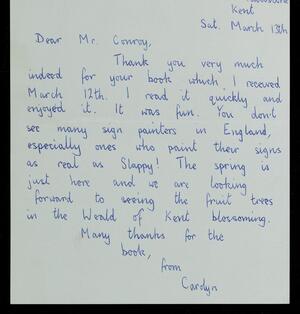 Kent
Sat. March 13th
Dear Mr. Conroy,
Thank you very much
indeed for your book which I received
March 12th. I read it quickly and
enjoyed it. It was fun. You don't
see many sign painters in England,
especially ones who paint their signs
as real as Slappy! The spring is
just here and we are looking
forward to seeing the fruit trees
in the Weald of Kent blossoming.
Many thanks for the
book,
from
Carolyn